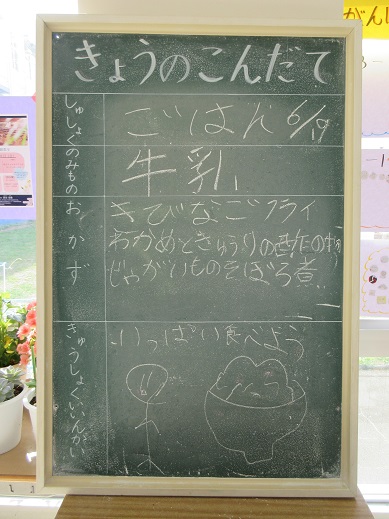 きょうのこんだて
しゅしょく
ごはん 6/19
のみもの
牛乳
おかず
きびなごフライ
わかめときゅうりの酢の物
じゃがいものそぼろ煮
きゅうしょくいいんかい
いっぱい食べよう
がんば